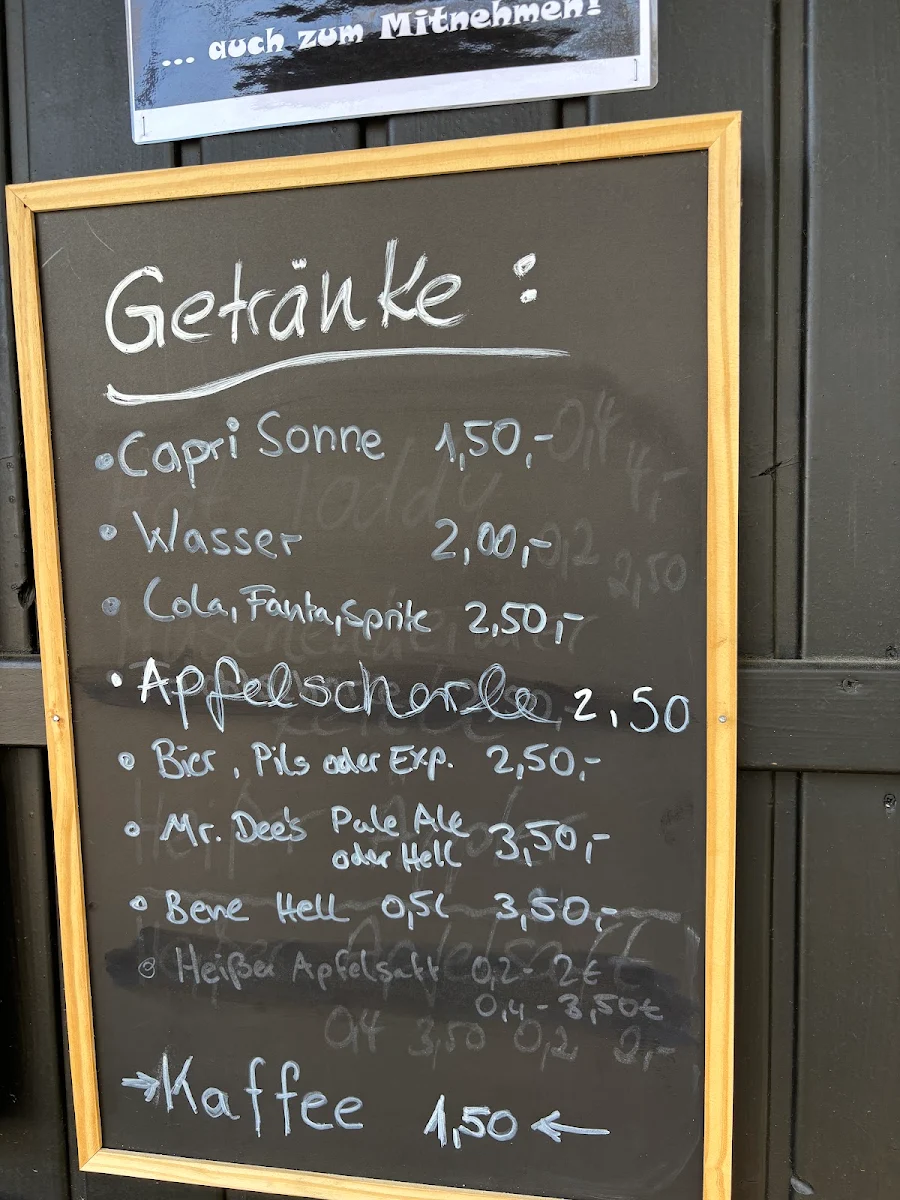 ... auch zum Mitnehmen!
Getränke :
• Capri Sonne 1,50,-
• Wasser 2,00,-
• Cola, Fanta, Sprite 2,50,-
• Apfelschorle 2,50
• Bier, Pils oder Exp. 2,50,-
• Mr. Dee's Pale Ale 3,50,-
oder Hell
• Bene Hell 0,5l 3,50,-
• Heißer Apfelsaft 0,2- 2€
0,4 - 3,50€
0,4 3,50 0,2 2,-
→ Kaffee 1,50 ←